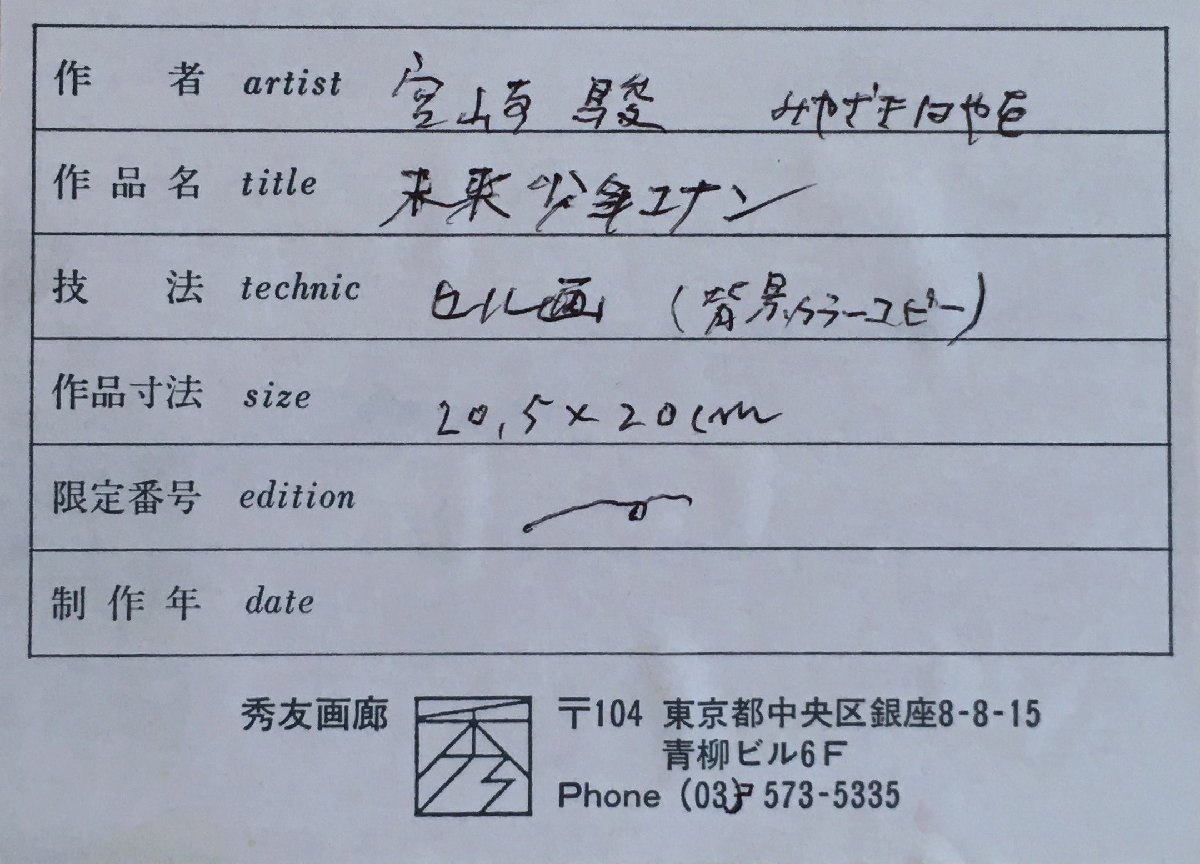 作者 artist 宮崎 駿 みやざきはやを
作品名 title 未来少年コナン
技法 technic セル画 (背景カラーコピー)
作品寸法 size 20.5×20cm
限定番号 edition
制作年 date
秀友画廊 〒104 東京都中央区銀座8-8-15
青柳ビル6F
Phone (03) 573-5335